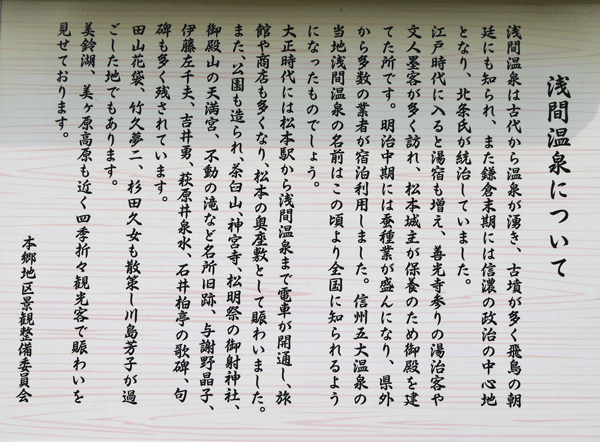 浅間温泉について
浅間温泉は古代から温泉が湧き、古墳が多く飛鳥の朝
廷にも知られ、また鎌倉末期には信濃の政治の中心地
となり、北条氏が統治していました。
江戸時代に入ると湯宿も増え、善光寺参りの湯治客や
文人墨客が多く訪れ、松本城主が保養のため御殿を建
てた所です。明治中期には蚕種業が盛んになり、県外
から多数の業者が宿泊利用しました。信州五大温泉の
当地浅間温泉の名前はこの頃より全国に知られるよう
になったものでしょう。
大正時代には松本駅から浅間温泉まで電車が開通し、旅
館や商店も多くなり、松本の奥座敷として賑わいました。
また、公園も造られ、茶臼山、神宮寺、松明祭の御射神社、
御殿山の天満宮、不動の滝など名所旧跡、与謝野晶子、
伊藤左千夫、吉井勇、萩原井泉水、石井柏亭の歌碑、句
碑も多く残されています。
田山花袋、竹久夢二、杉田久女も散策し川島芳子が過
ごした地でもあります。
美鈴湖、美ヶ原高原も近く四季折々観光客で賑わいを
見せております。
本郷地区景観整備委員会